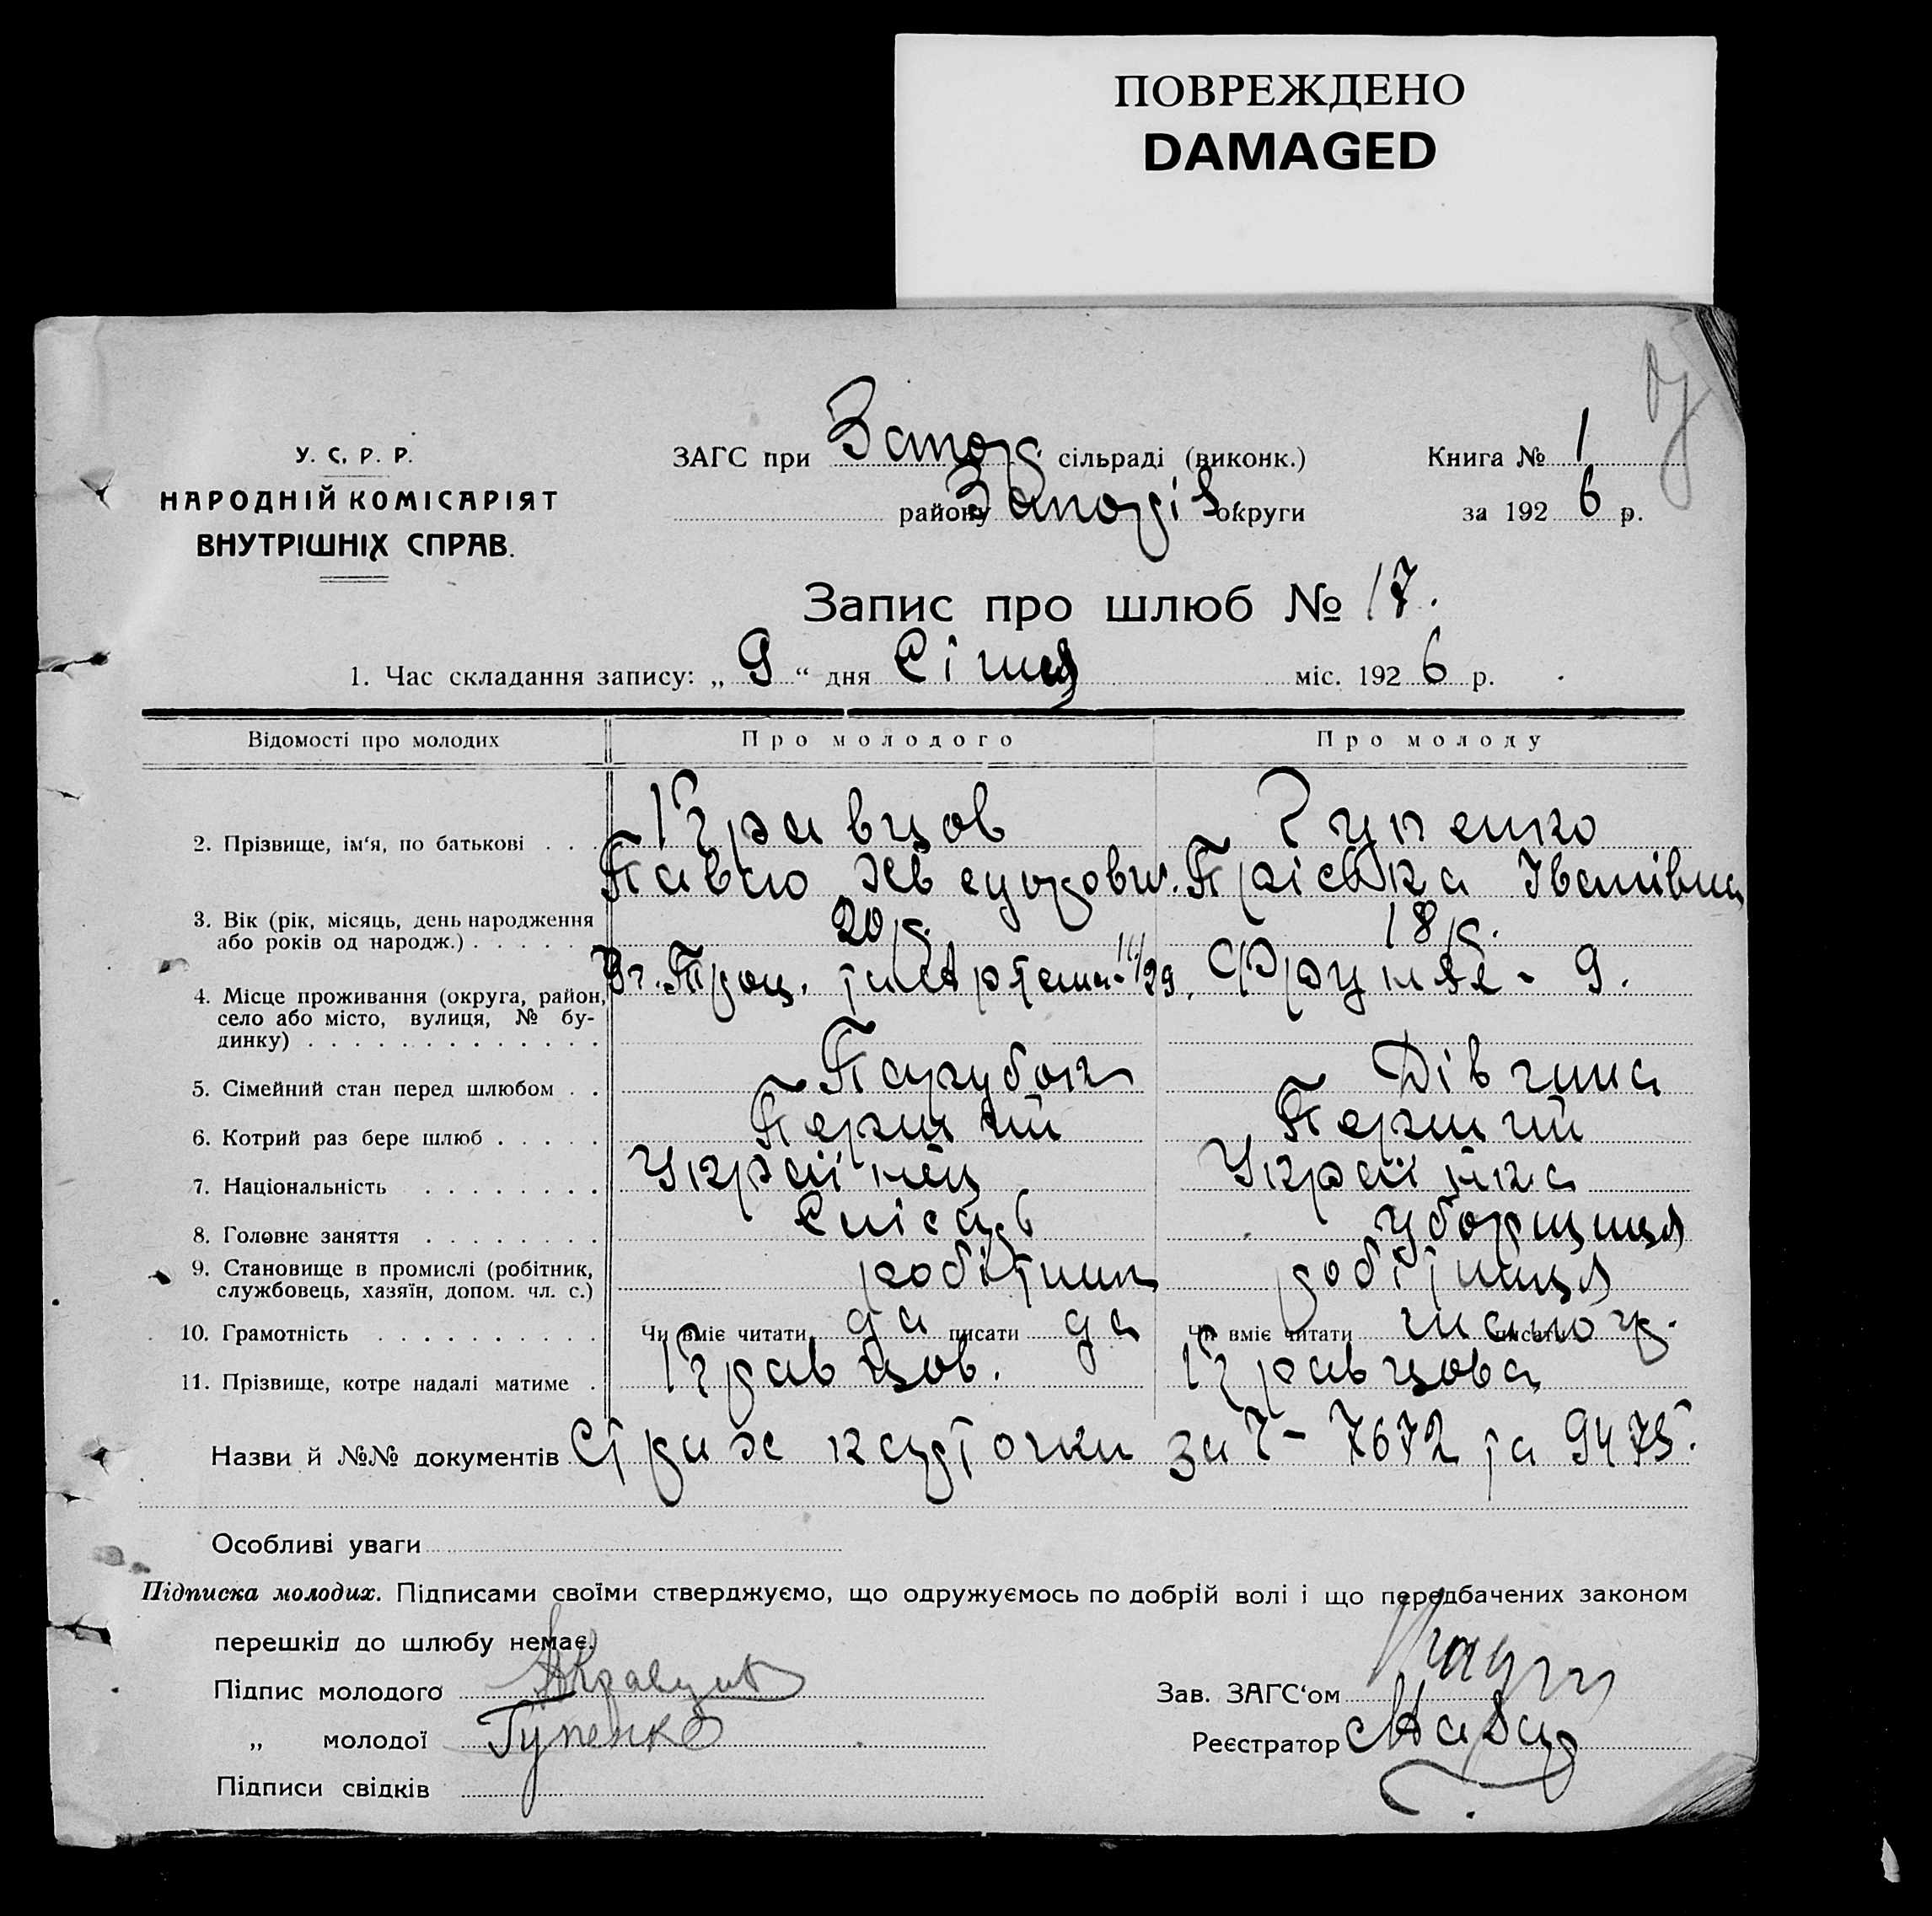 ПОВРЕЖДЕНО
DAMAGED
У. С. Р. Р.
НАРОДНІЙ КОМІСАРІЯТ
ВНУТРІШНІХ СПРАВ.
ЗАГС при Запор. сільраді (виконк.)
району Запоріз округи
Книга № 1
за 192 6 р.
Запис про шлюб № 17.
1. Час складання запису: „ 9 “ дня Січня міс. 192 6 р.
Відомості про молодих Про молодого Про молоду
2. Прізвище, ім‘я, по батькові . . . Кравцов Гупенко
Павло Пріська Іванівна
3. Вік (рік, місяць, день народження 20 р. 18 р.
або років од народж.) . . . . . .
4. Місце проживання (округа, район, Фрунзе - 9.
село або місто, вулиця, № бу-
динку) . . . . . . . . . . . . .
5. Сімейний стан перед шлюбом . . Парубок Дівчина
6. Котрий раз бере шлюб . . . . . Перший Перший
7. Національність . . . . . . . . Українец Українка
8. Головне заняття . . . . . . . . уборщиця
9. Становище в промислі (робітник, робітник робітниця
службовець, хазяїн, допом. чл. с.)
10. Грамотність . . . . . . . . . . Чи вміє читати да писати да Чи вміє читати писати
11. Прізвище, котре надалі матиме . Кравцов. Кравцова
Назви й №№ документів Страх карточки за Ч- 7672 та 9475.
Особливі уваги
Підписка молодих. Підписами своїми стверджуємо, що одружуємось по добрій волі і що передбачених законом
перешкід до шлюбу немає.
Підпис молодого Кравцов
„ молодої Гупенко
Підписи свідків
Зав. ЗАГС‘ом
Реєстратор